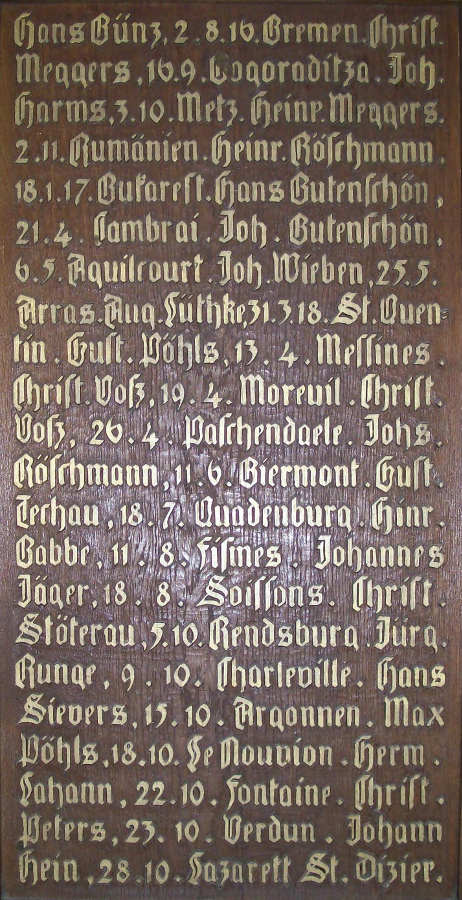 Hans Bünz, 2.8.16. Bremen. Christ.
Meggers, 16.9. Logoraditza. Joh.
Harms, 3.10. Metz. Heinr. Meggers.
2.11. Rumänien. Heinr. Röschmann.
18.1.17. Bukarest. Hans Butenschön,
21.4. Cambrai. Joh. Butenschön.
6.5. Aquilcourt. Joh. Wieben, 25.5.
Arras. Aug. Lüthke, 31.3.18. St. Quen-
tin. Gust. Pöhls, 13.4. Messines.
Christ. Voß, 19.4. Moreuil. Christ.
Voß, 26.4. Paschendaele. Johs.
Röschmann, 11.6. Biermont. Gust.
Techau, 18.7. Quadenburg. Hinr.
Babbe, 11.8. Fismes. Johannes
Jäger, 18.8. Soissons. Christ.
Stöterau, 5.10. Rendsburg. Jürg.
Runge, 9.10. Charleville. Hans
Sievers, 15.10. Argonnen. Max
Pöhls, 18.10. Le Nouvion. Herm.
Lahann, 22.10. Fontaine. Christ.
Peters, 23.10. Verdun. Johann
Hein, 28.10. Lazarett St. Dizier.